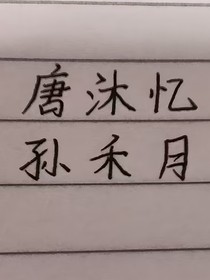 唐沐忆
孙禾月